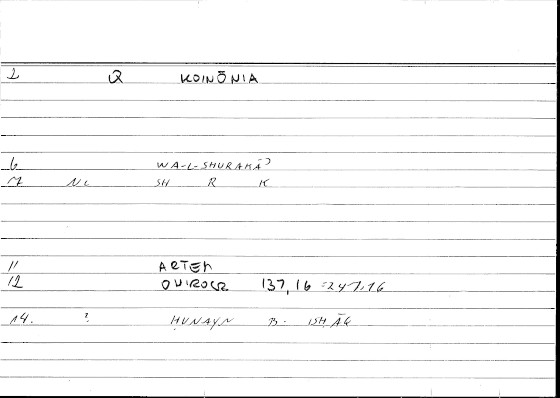 2 Q KOINŌNIA
6 WA-L-SHURAKĀʾ
7 NC SH R K
11 ARTEM
12 ONIROCR 137,16 =247,16
14. ? ḤUNAYN B. ISḤĀQ